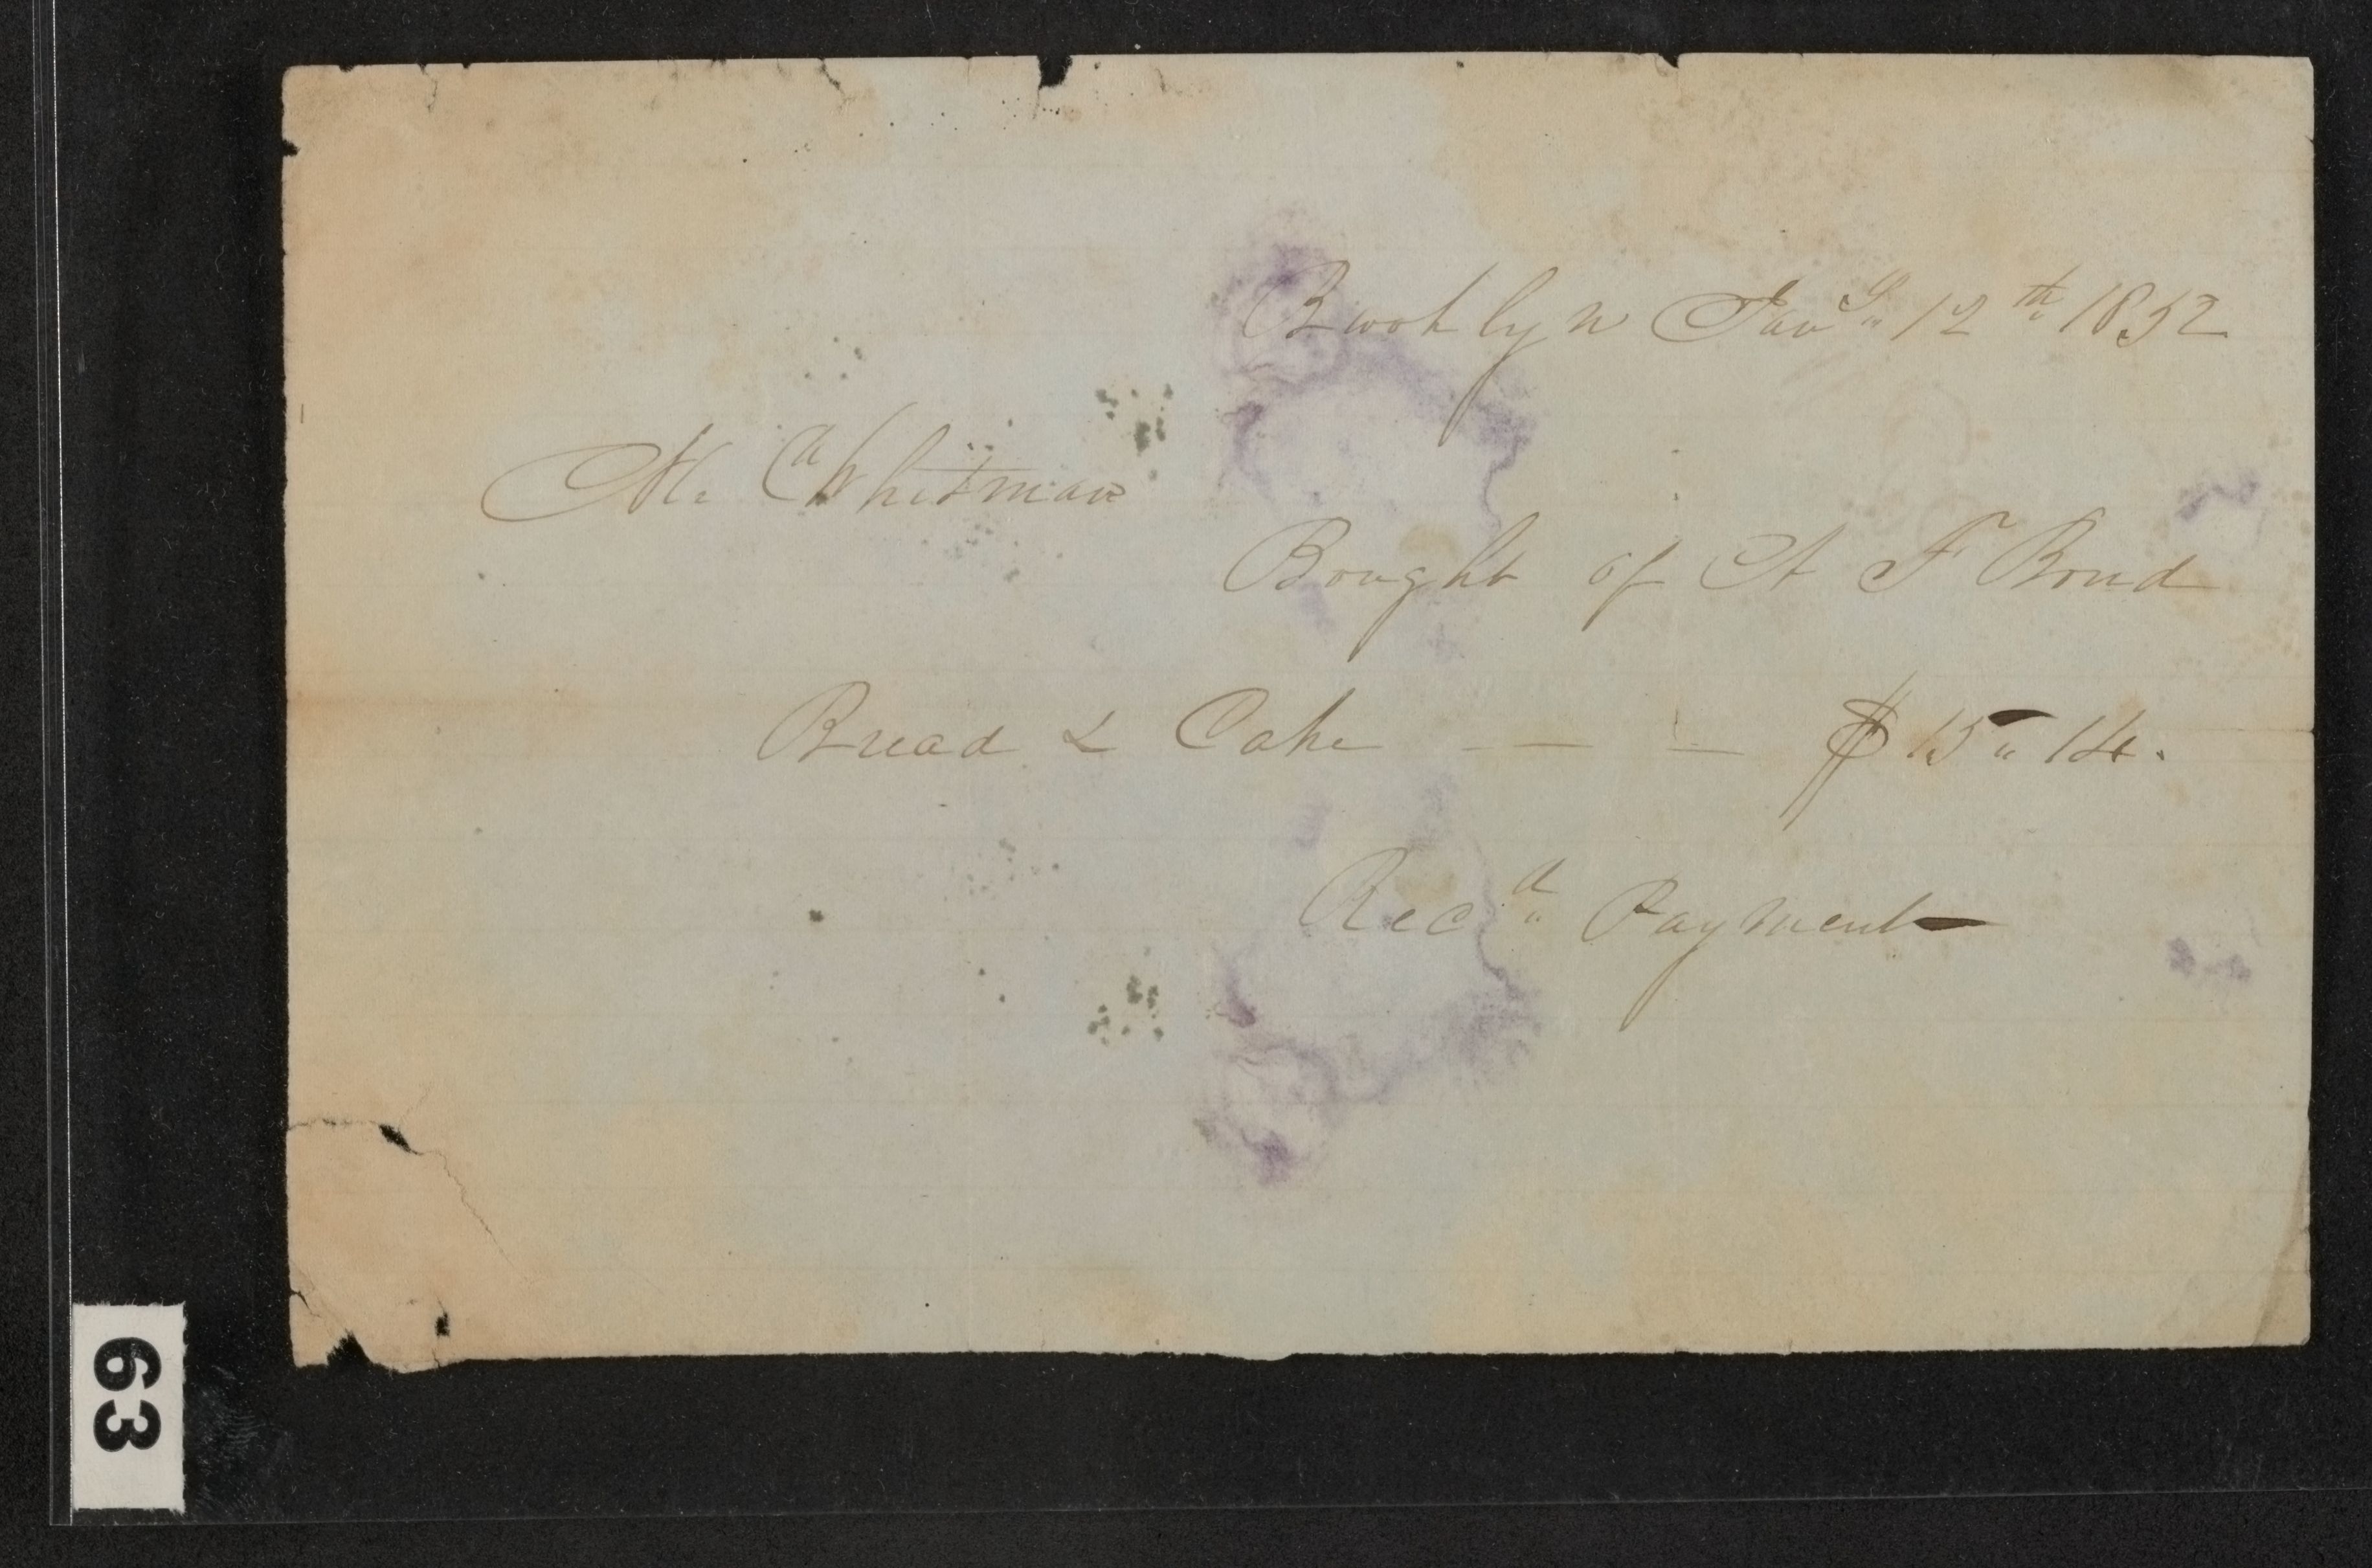 Brooklyn Jany 12th 1852
Mr Whitman
Bought of A F Bond
Bread & Cake — — $15"14.
Recd Payment
63